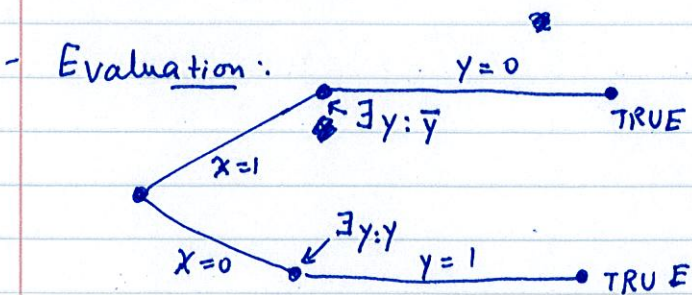 - Evaluation:
y = 0
TRUE
∃y: ȳ
x=1
∃y:y
x=0
y = 1
TRUE